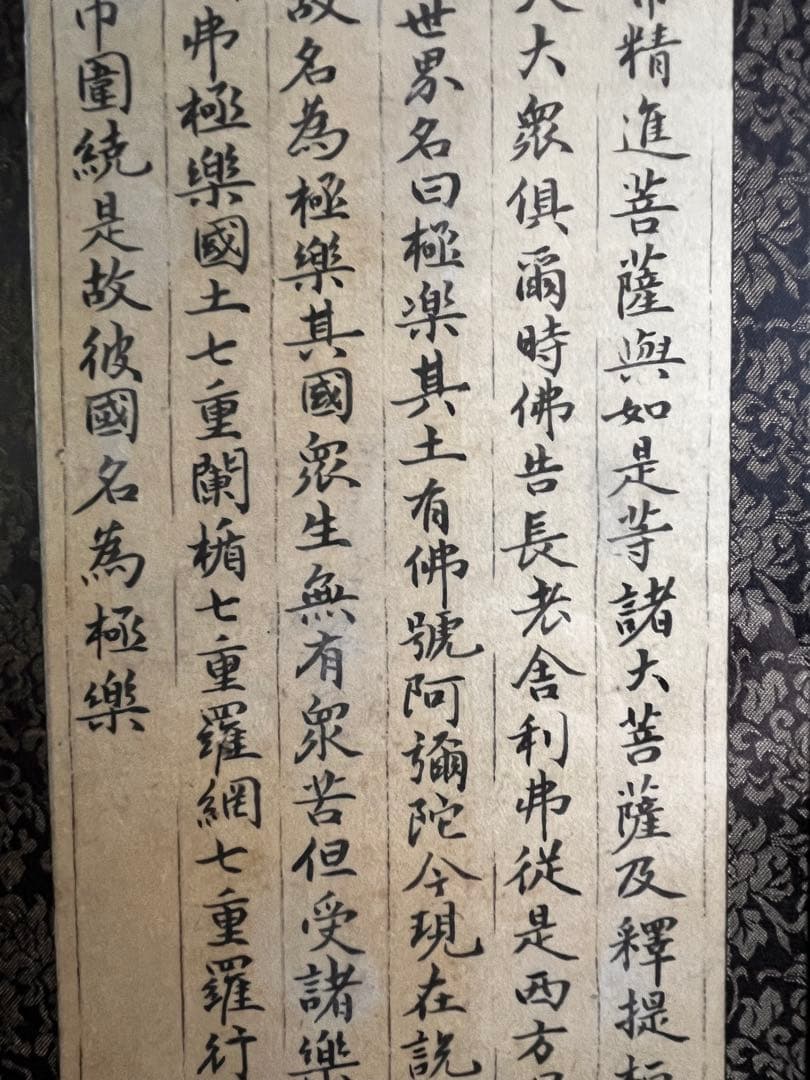 精進菩薩與如是等諸大菩薩及釋提
大衆俱爾時佛告長老舍利弗從是西方
世界名曰極楽其土有佛號阿彌陀今現在説
故名為極樂其國衆生無有衆苦但受諸樂
弗極樂國土七重闌楯七重羅網七重羅行
帀圍繞是故彼國名為極樂